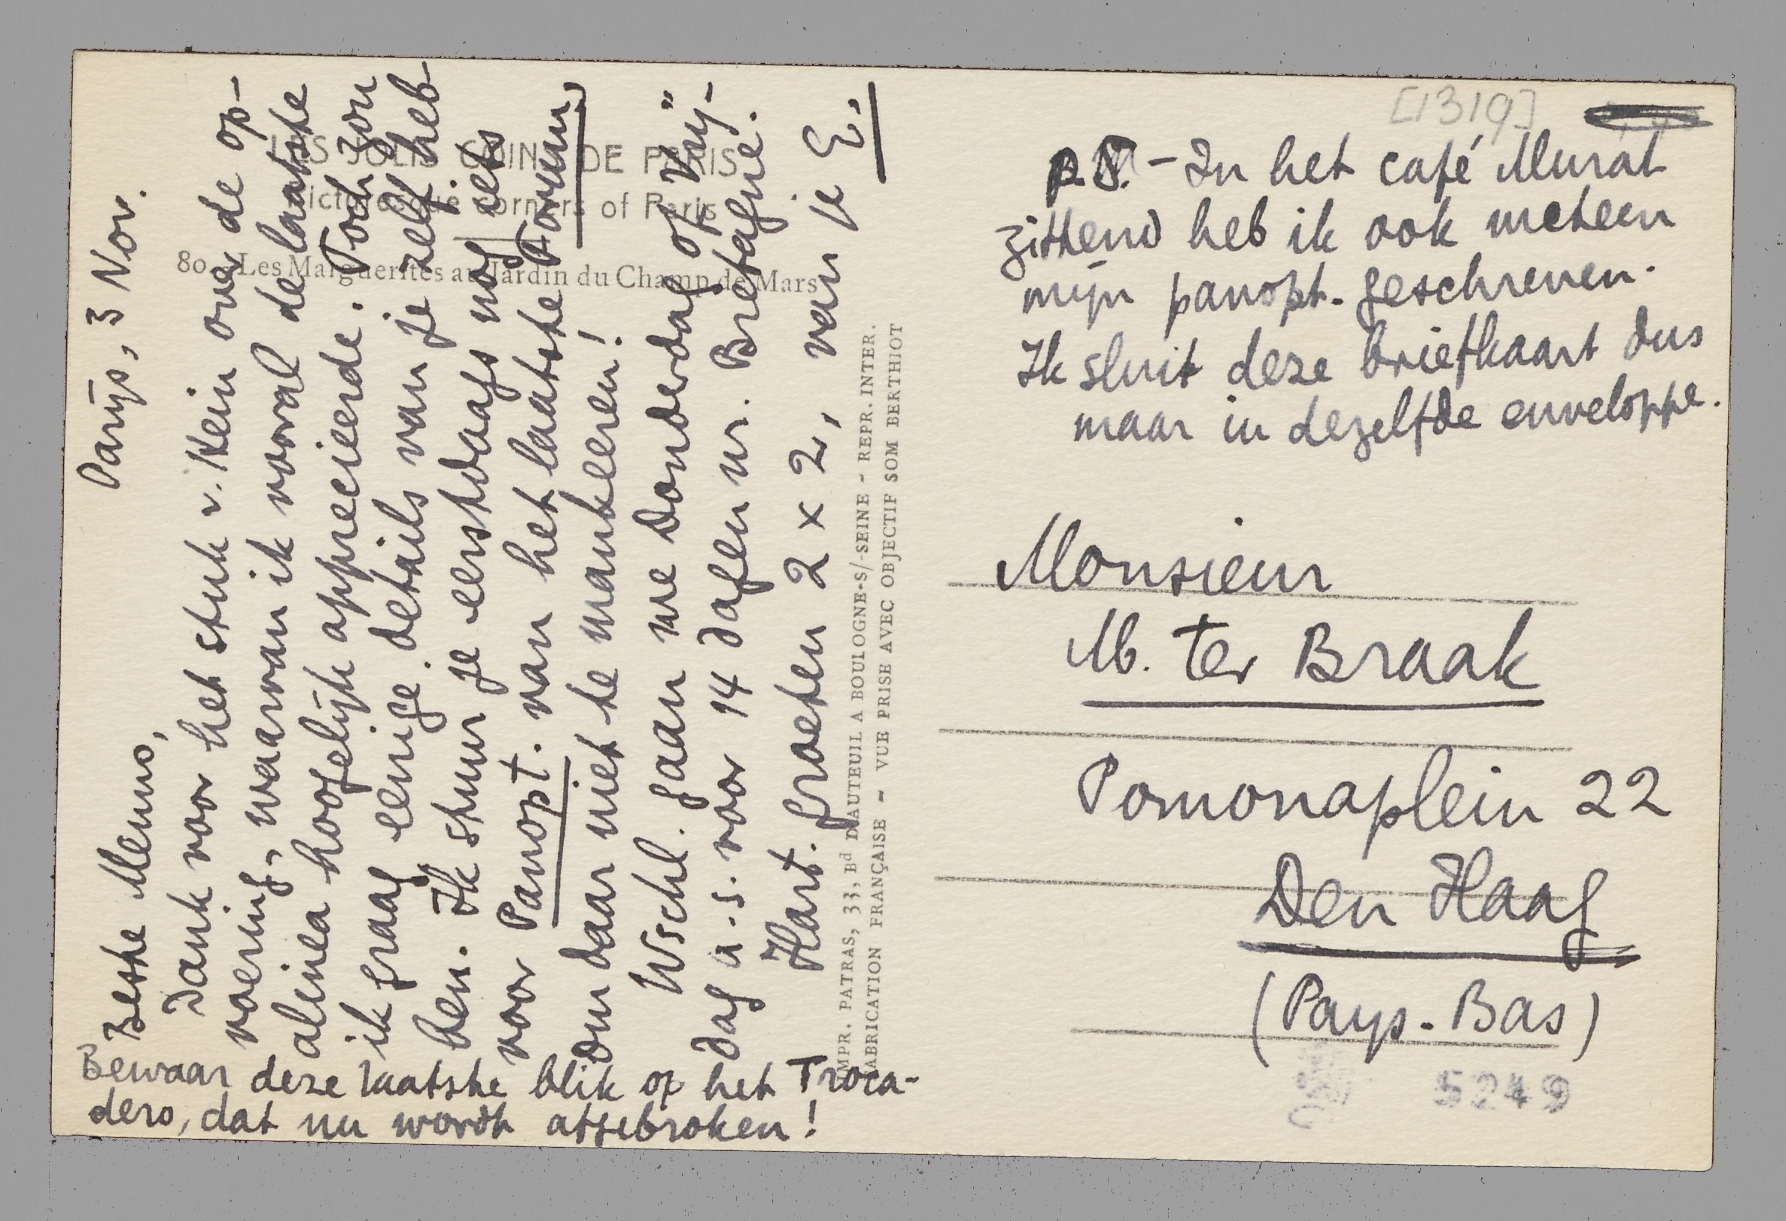 Parijs, 3 Nov.
Beste Menno,
Dank voor het stuk v. Hein over de op-
voering, waarvan ik vooral de laatste
alinea hoogelijk apprecieerde. Toch zou
ik graag eenige details van je zelf heb-
ben. Ik stuur je eerstdaags nog iets
voor Panopt. van het laatste Forum,
om daar niet te mankeeren!
Wschl. gaan we Donderdag of Vrij-
dag a.s. voor 14 dagen nr. Bretagne.
Hart. groeten 2 x 2, van je E.
Bewaar deze laatste blik op het Troca-
dero, dat nu wordt afgebroken!
LES JOLIS COINS DE PARIS
Picturesque corners of Paris
80. Les Marguerites au Jardin du Champ de Mars
IMPR. PATRAS, 33, Bd D'AUTEUIL A BOULOGNE-S/-SEINE - REPR. INTER.
FABRICATION FRANÇAISE - VUE PRISE AVEC OBJECTIF SOM BERTHIOT
[1319]
P.S. - In het café Murat
zittend heb ik ook meteen
mijn panopt. geschreven.
Ik sluit deze briefkaart dus
maar in dezelfde enveloppe.
Monsieur
M. ter Braak
Pomonaplein 22
Den Haag
(Pays-Bas)
5249